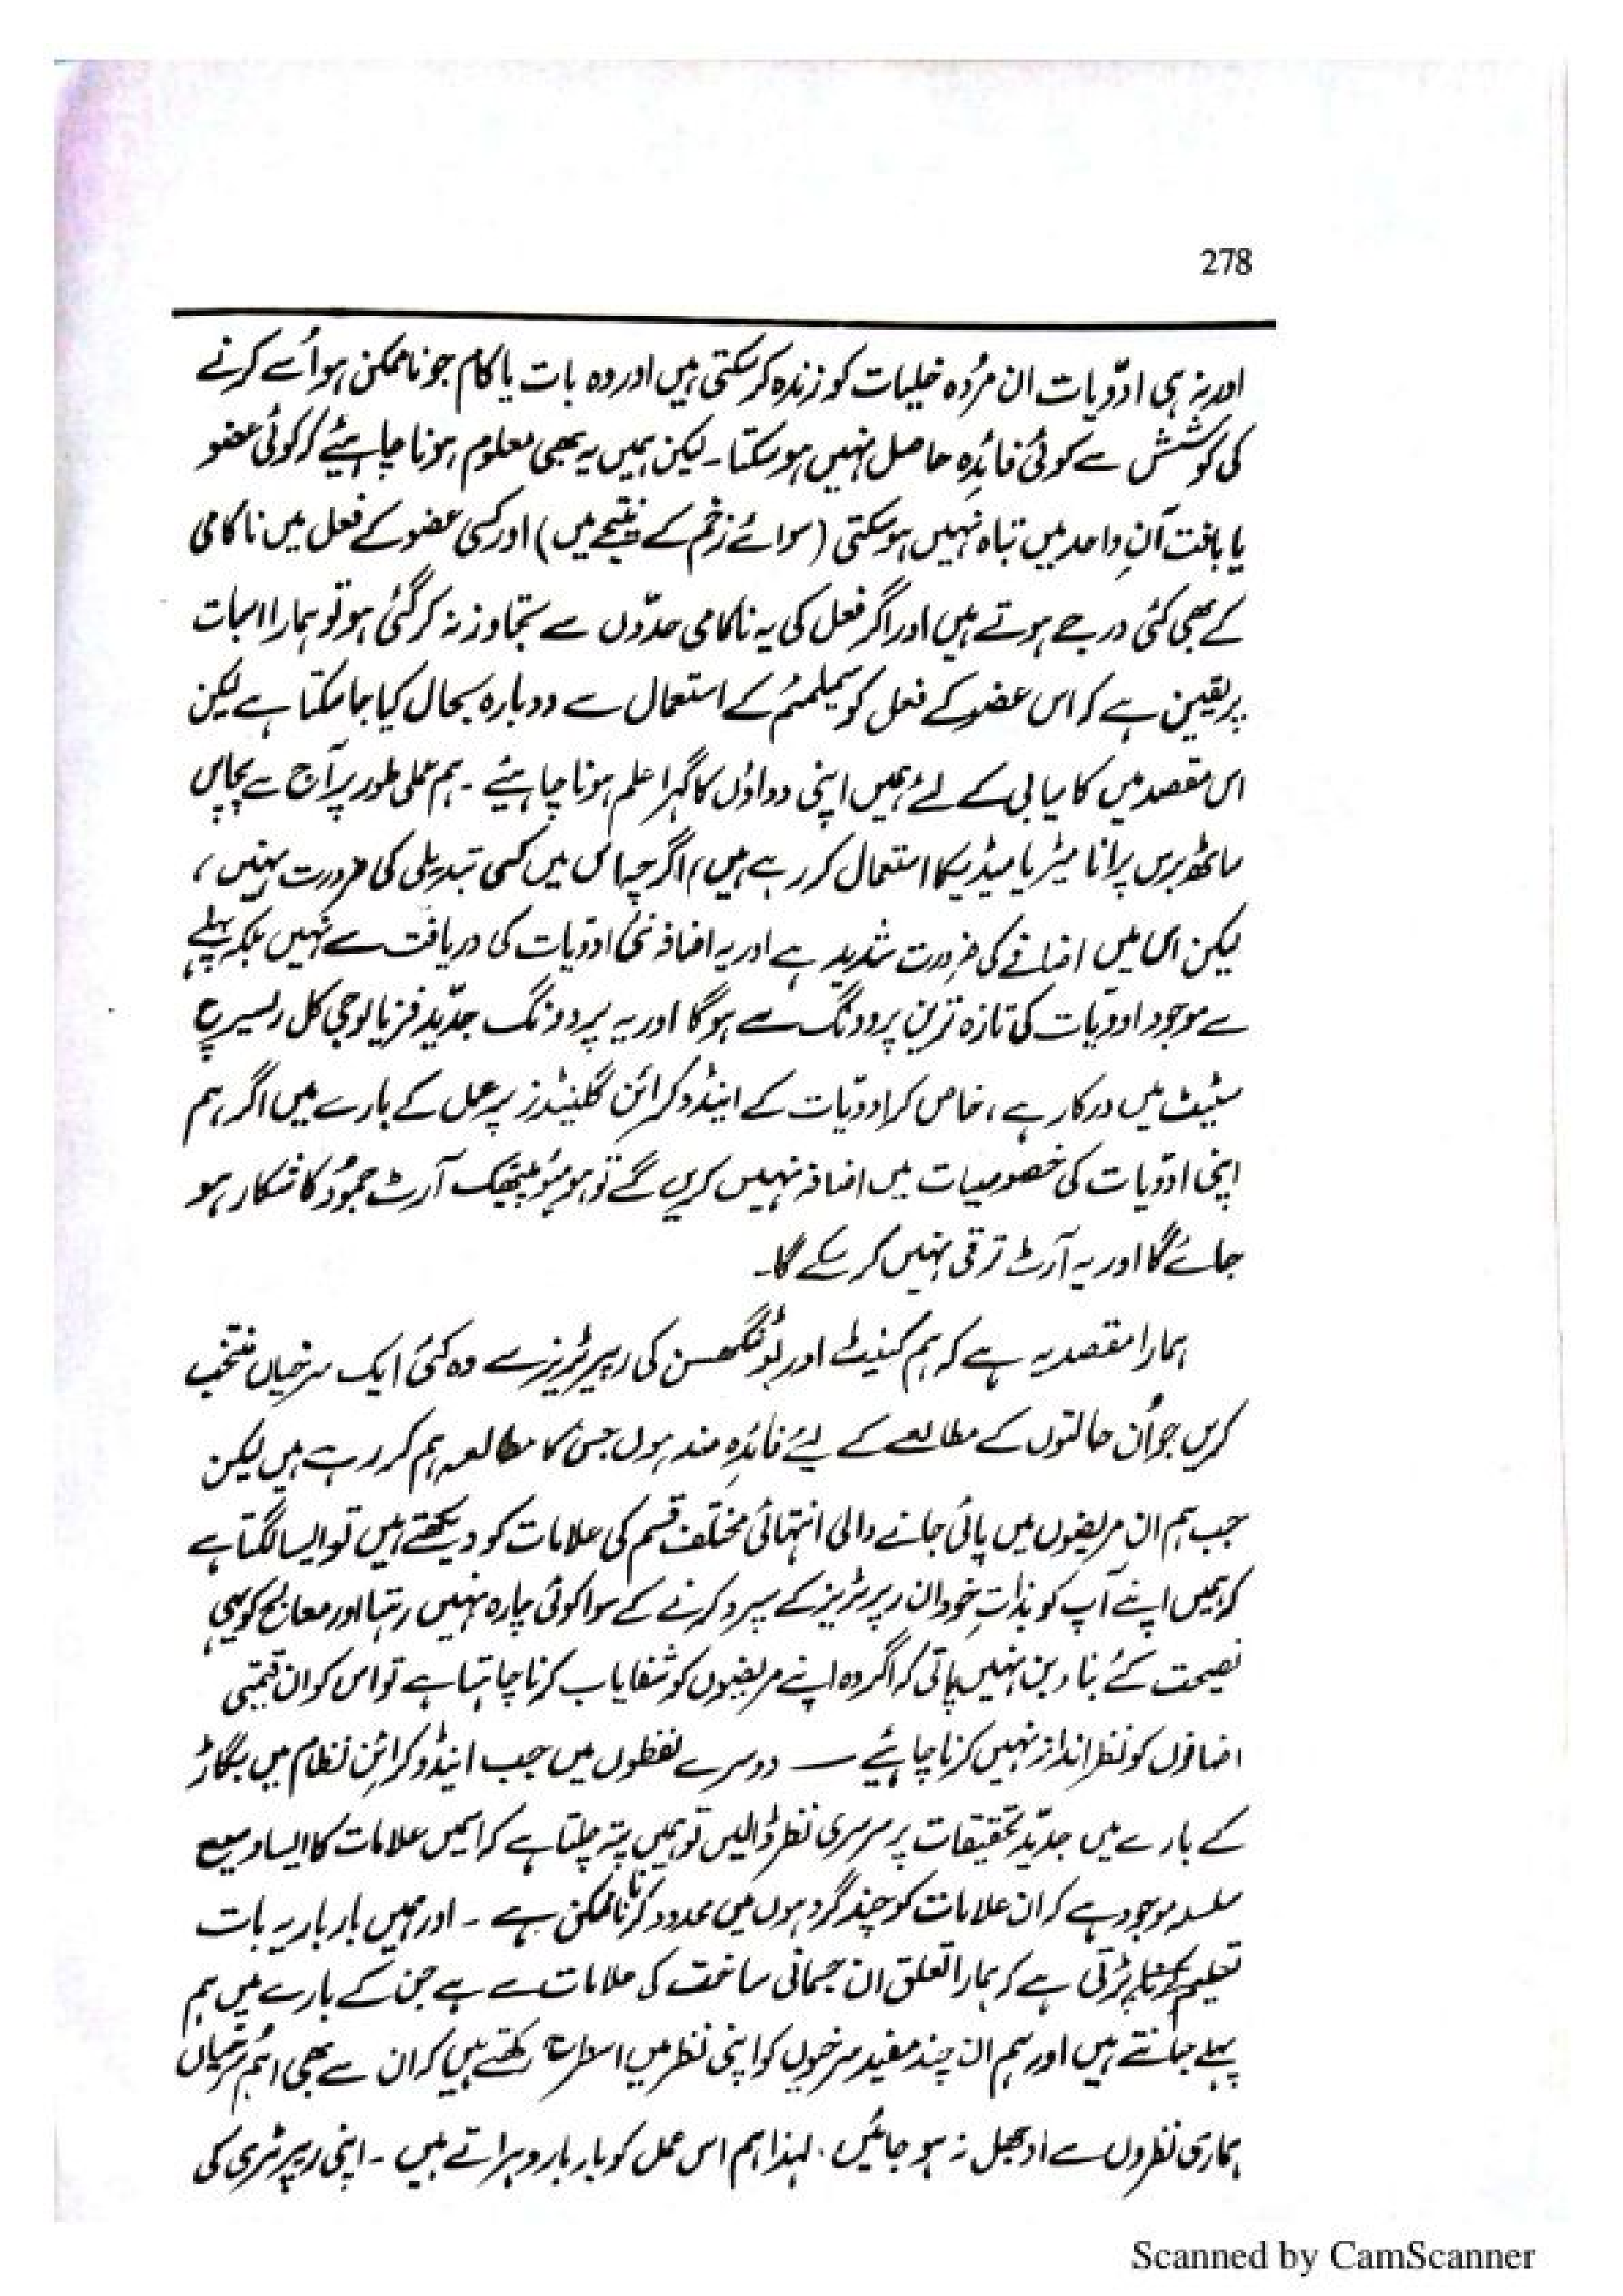 278
اور نہ ہی ادوّیات ان مرُدہ خلیات کو زندہ کر سکتی ہیں اور وہ بات یا کام جو ناممکن ہو اُسے کرنے
کی کوشش سے کوئی فائدہ حاصل نہیں ہو سکتا۔ لیکن ہمیں یہ بھی معلوم ہونا چاہیئے کہ کوئی عضو
یا بافت آنِ واحد میں تباہ نہیں ہو سکتی (سوائے زخم کے نتیجے میں) اور کسی عضو کے فعل میں ناکامی
کے بھی کئی درجے ہوتے ہیں اور اگر فعل کی یہ ناکامی حدّوں سے تجاوز نہ کر گئی ہو تو ہمارا اس بات
پر یقین ہے کہ اس عضو کے فعل کو سیملمم کے استعمال سے دوبارہ بحال کیا جا سکتا ہے لیکن
اس مقصد میں کامیابی کے لئے ہمیں اپنی دواؤں کا گہرا علم ہونا چاہیئے ۔ ہم عملی طور پر آج سے پچاس
ساٹھ برس پرانا میٹریا میڈیکا استعمال کر رہے ہیں، اگرچہ اس میں کسی تبدیلی کی ضرورت نہیں،
لیکن اس میں اضافے کی ضرورت شدید ہے اور یہ اضافہ نئی ادوّیات کی دریافت سے نہیں بلکہ پہلے
سے موجود ادوّیات کی تازہ ترین پرووِنگ سے ہوگا اور یہ پرووِنگ جدّید فزیالوجی کل ریسرچ
سٹیٹ میں درکار ہے، خاص کر ادوّیات کے اینڈوکرائن گلینڈز پر عمل کے بارے میں اگر ہم
اپنی ادوّیات کی خصوصیات میں اضافہ نہیں کریں گے تو ہومیوپیتھک آرٹ جمود کا شکار ہو
جائے گا اور یہ آرٹ ترقی نہیں کر سکے گا۔
ہمارا مقصد یہ ہے کہ ہم کینٹ اور بوننگھسن کی ریپرٹریز سے وہ کئی ایک سرخیاں منتخب
کریں جو اُن حالتوں کے مطالعے کے لیے فائدہ مند ہوں جس کا مطالعہ ہم کر رہے ہیں لیکن
جب ہم ان مریضوں میں پائی جانے والی انتہائی مختلف قسم کی علامات کو دیکھتے ہیں تو ایسا لگتا ہے
کہ ہمیں اپنے آپ کو بذاتِ خود ان ریپرٹریز کے سپرد کرنے کے سوا کوئی چارہ نہیں رہتا اور معالج کو یہی
نصیحت کئے بنا دبن نہیں پاتی کہ اگر وہ اپنے مریضوں کو شفایاب کرنا چاہتا ہے تو اس کو ان قیمتی
اضافوں کو نظر انداز نہیں کرنا چاہیئے — دوسرے لفظوں میں جب اینڈوکرائن نظام میں بگاڑ
کے بارے میں جدّید تحقیقات پر سرسری نظر ڈالیں تو ہمیں پتہ چلتا ہے کہ اسمیں علامات کا ایسا وسیع
سلسلہ موجود ہے کہ ان علامات کو چند گروہوں میں محدود کرنا ناممکن ہے ۔ اور ہمیں بار بار یہ بات
تسلیم کرنا پڑتی ہے کہ ہمارا تعلق ان جسمانی ساخت کی علامات سے ہے جن کے بارے میں ہم
پہلے جانتے ہیں اور ہم ان چند مفید سرخیوں کو اپنی نظر میں اسطرح رکھتے ہیں کہ ان سے بھی اہم سرخیاں
ہماری نظروں سے اوجھل نہ ہو جائیں۔ لہذا ہم اس عمل کو بار بار دہراتے ہیں ۔ اپنی ریپرٹری کی
Scanned by CamScanner